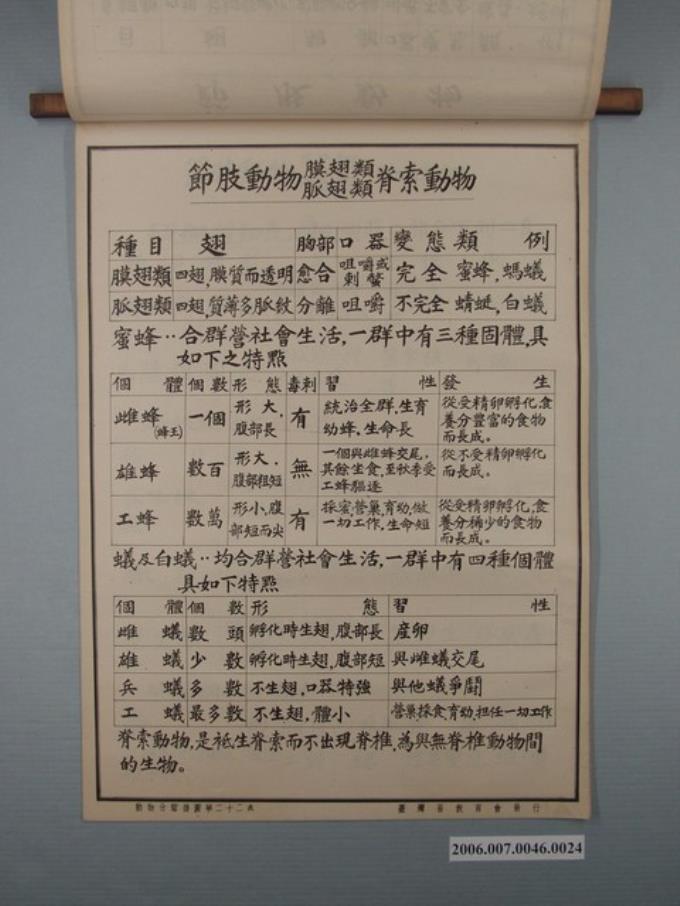 節肢動物 膜翅類 脊索動物
脈翅類
種目 翅 胸部 口器 變態 類例
膜翅類 四翅,膜質而透明 愈合 咀嚼或刺螫 完全 蜜蜂,螞蟻
脈翅類 四翅,質薄多脈紋 分離 咀嚼 不完全 蜻蜓,白蟻
蜜蜂‥合群營社會生活,一群中有三種固體,具
如下之特點
個體 個數 形態 毒刺 習性 發生
雌蜂(蜂王) 一個 形大,腹部長 有 統治全群,生育幼蜂,生命長 從受精卵孵化,食養分豐富的食物而長成。
雄蜂 數百 形大,腹部粗短 無 一個與雌蜂交尾,其餘坐食,至秋季受工蜂驅逐 從不受精卵孵化而長成。
工蜂 數萬 形小,腹部短而尖 有 採蜜,營巢,育幼,做一切工作,生命短 從受精卵孵化,食養分稀少的食物而長成。
蟻及白蟻‥均合群營社會生活,一群中有四種個體
具如下特點
個體 個數 形態 習性
雌蟻 數頭 孵化時生翅,腹部長 產卵
雄蟻 少數 孵化時生翅,腹部短 與雌蟻交尾
兵蟻 多數 不生翅,口器特強 與他蟻爭鬪
工蟻 最多數 不生翅,體小 營巢,採食,育幼,担任一切工作
脊索動物,是祇生脊索而不出現脊椎,為與無脊椎動物間
的生物。
動物分類掛圖第二十二表 臺灣省教育會發行
2006.007.0046.0024